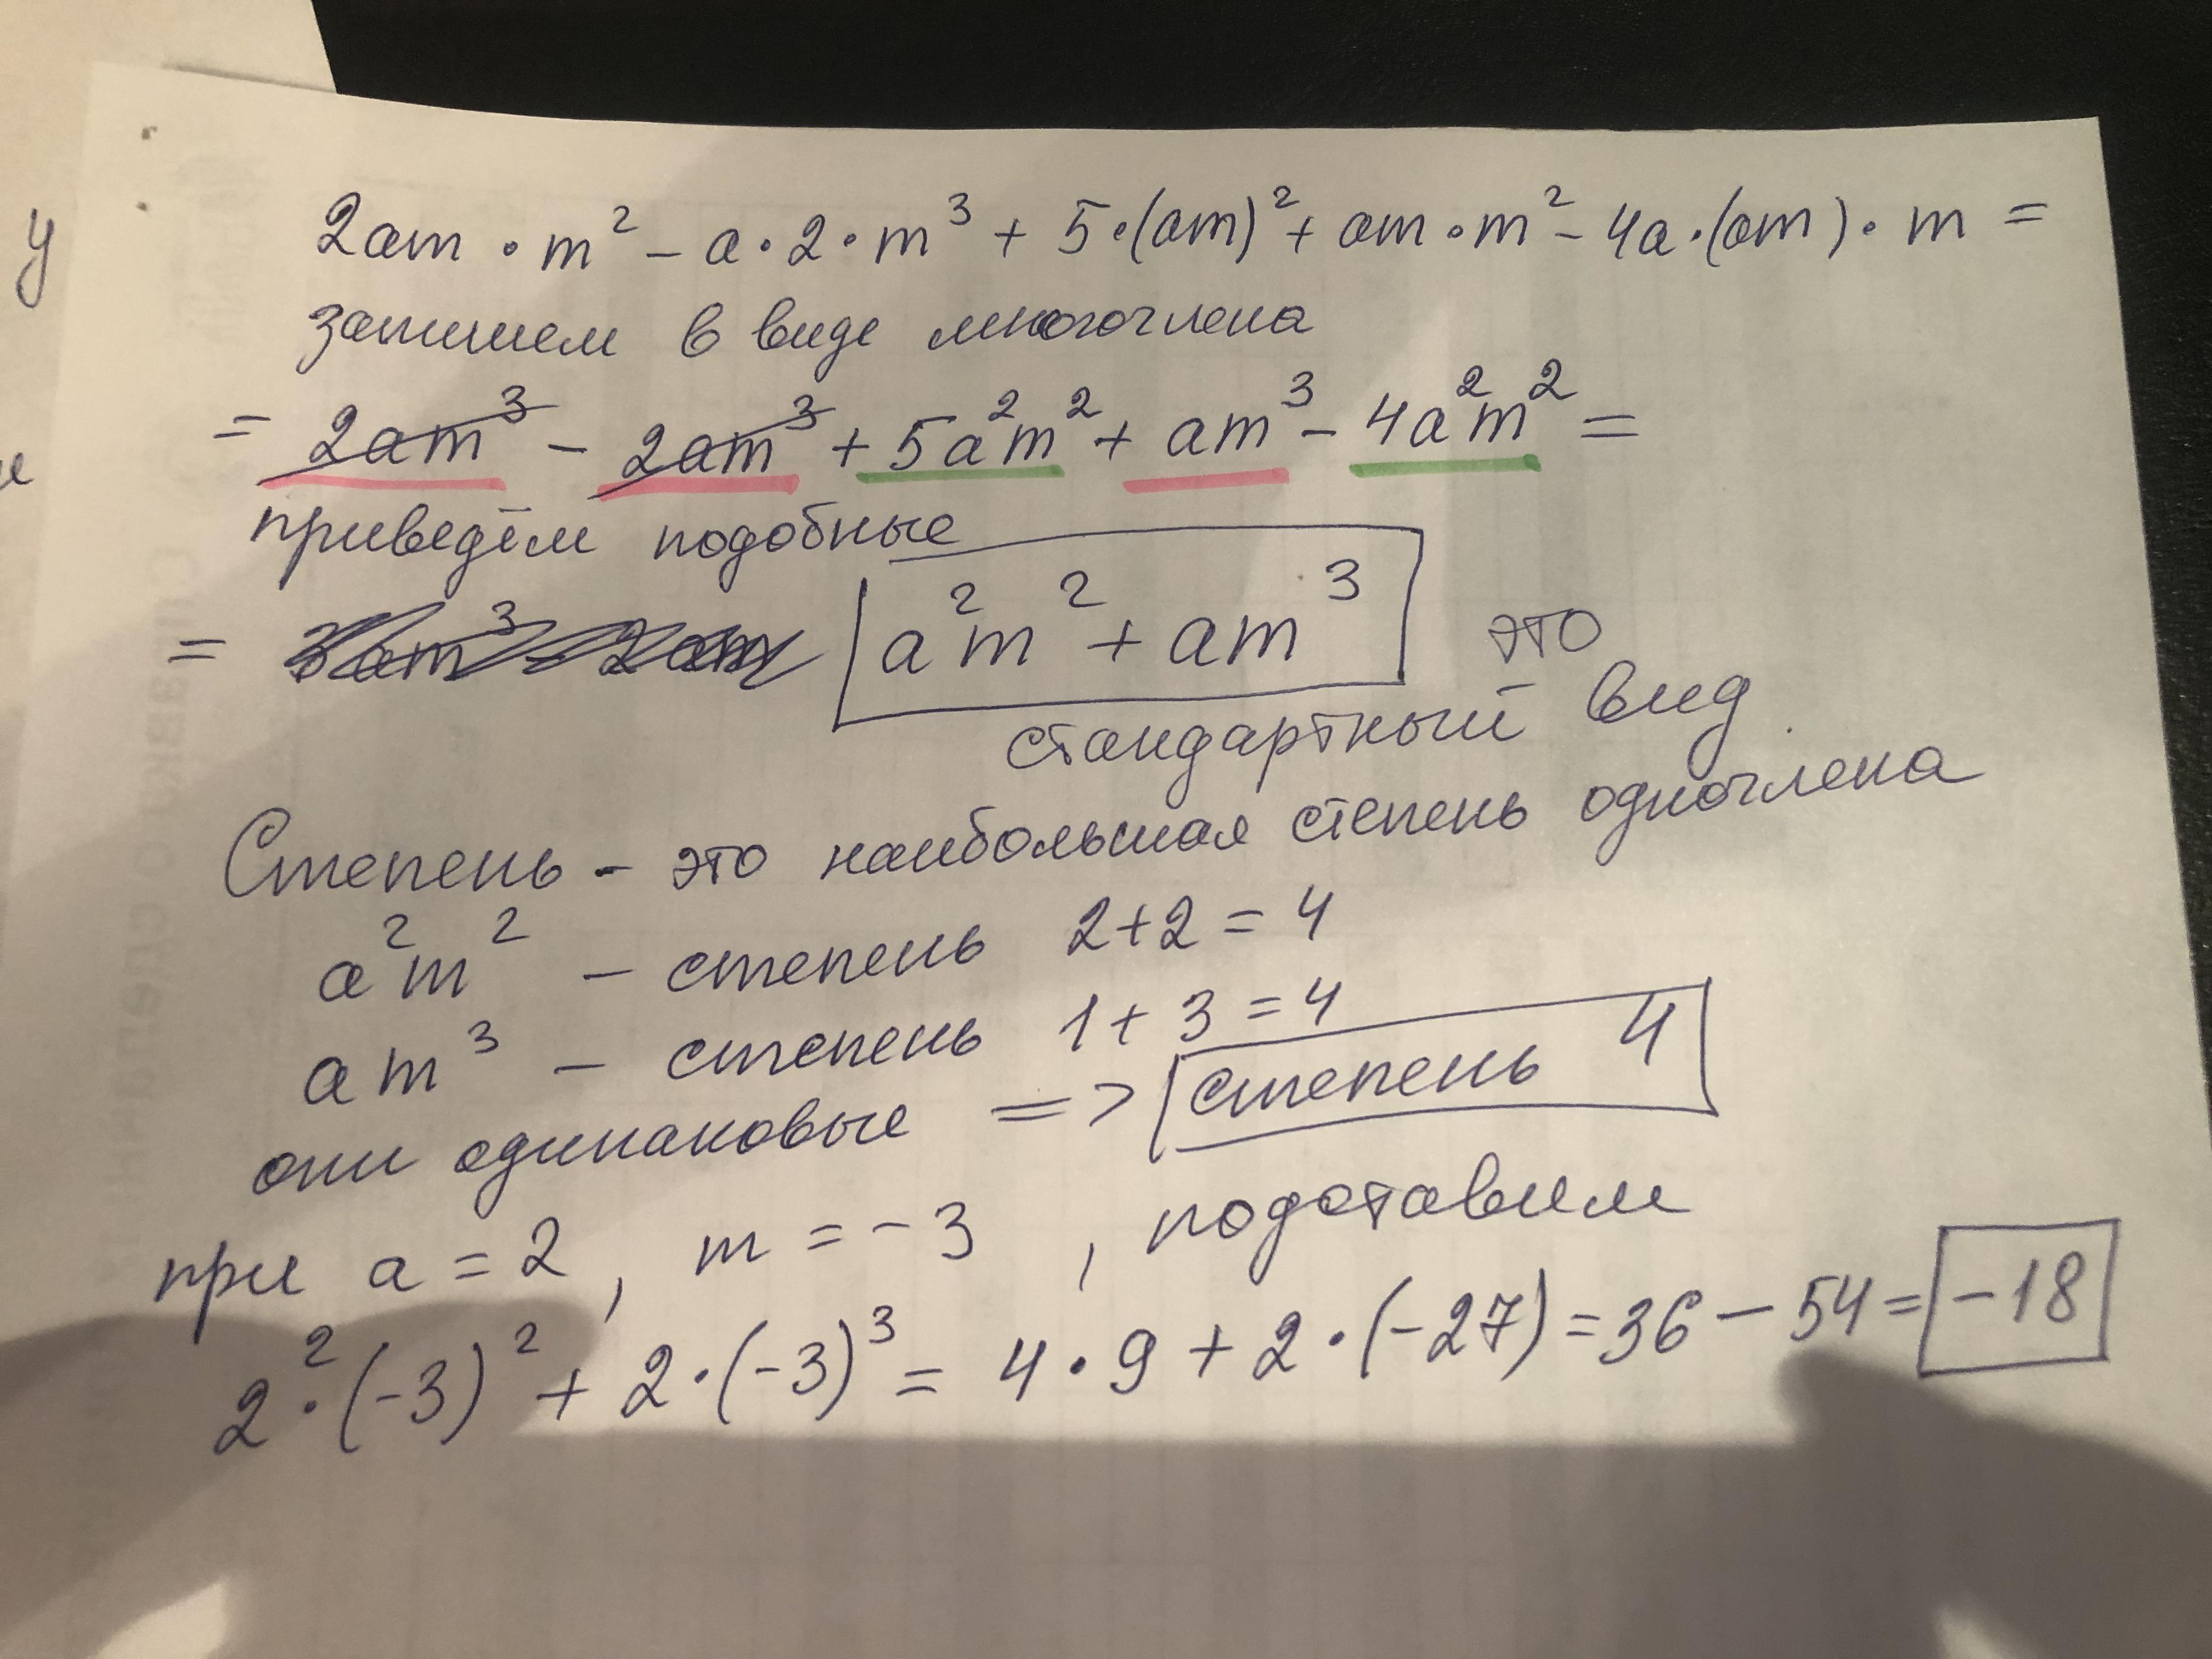 2am · m² − a · 2 · m³ + 5 · (am)² + am · m² − 4a · (am) · m =
запишем в виде многочлена
= 2am³ − 2am³ + 5a²m² + am³ − 4a²m² =
приведём подобные
= a²m² + am³ это
стандартный вид
Степень - это наибольшая степень одночлена
a²m² – степень 2+2 = 4
am³ – степень 1+3 = 4
они одинаковые => степень 4
при a = 2, m = −3, подставим
2² · (−3)² + 2 · (−3)³ = 4 · 9 + 2 · (−27) = 36 − 54 = −18
у